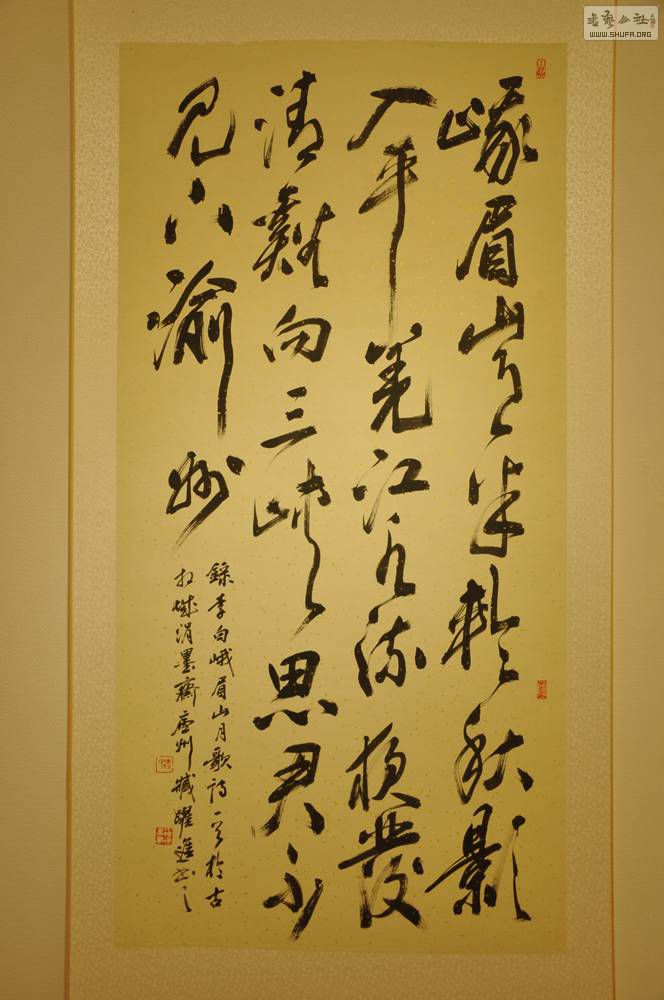 书艺公社
WWW.SHUFA.ORG
峨眉山月半輪秋影
入平羌江水流夜發
清谿向三峽思君不
見下渝州
錄李白峨眉山月歌詩一首於古
相城涓墨齋廬州臧躍進書之